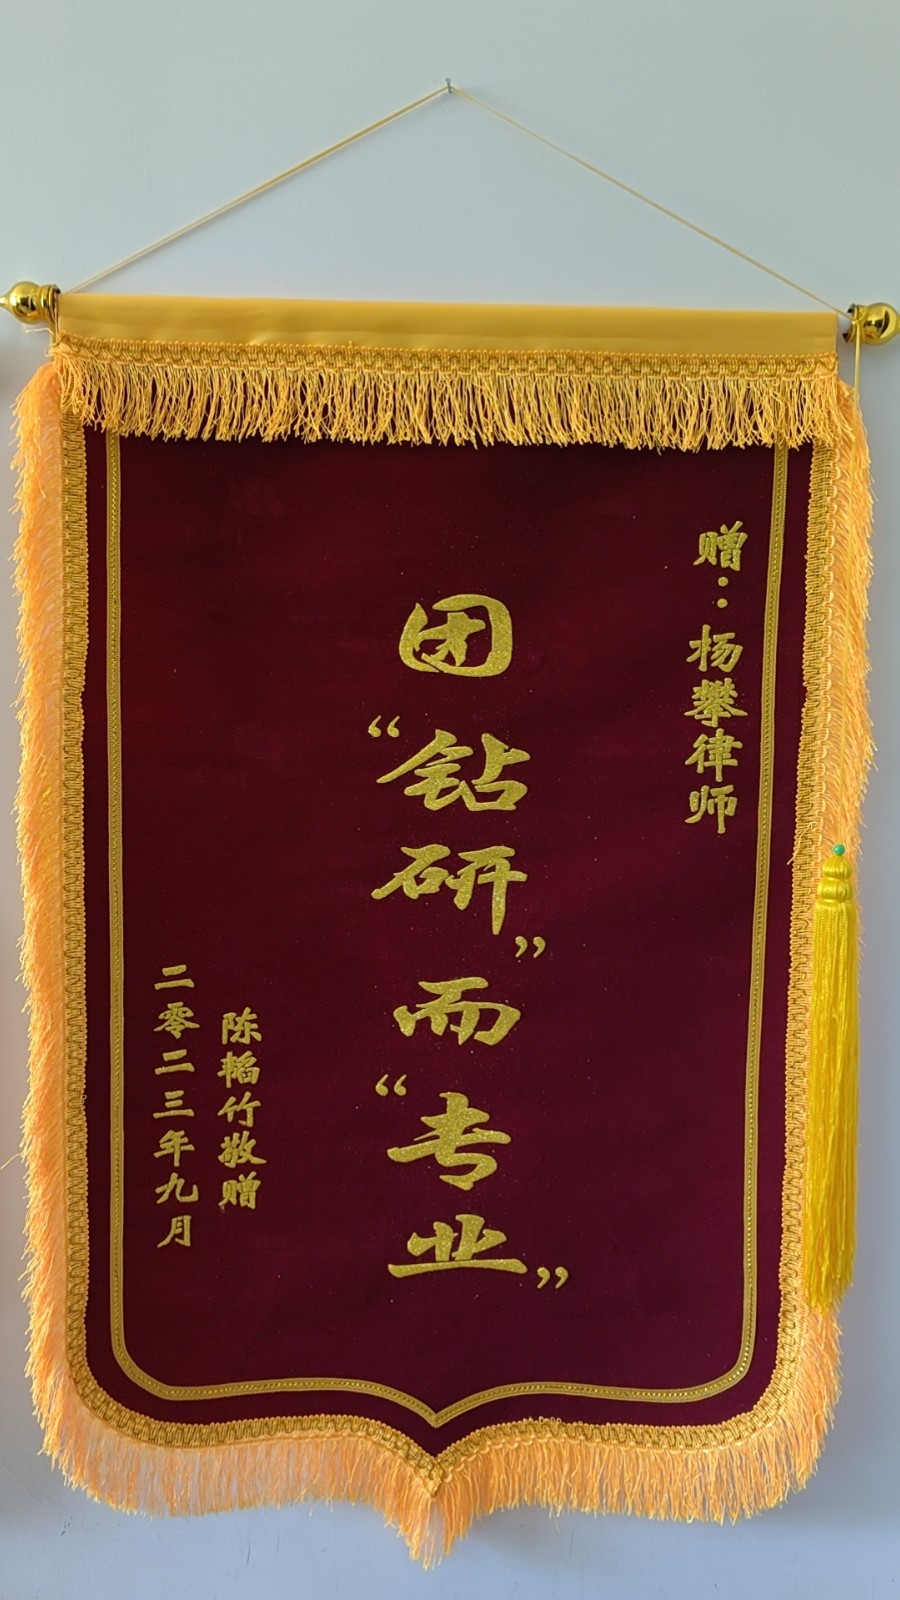 赠：杨攀律师
团“钻研”而“专业”
陈韬竹敬赠
二零二三年九月